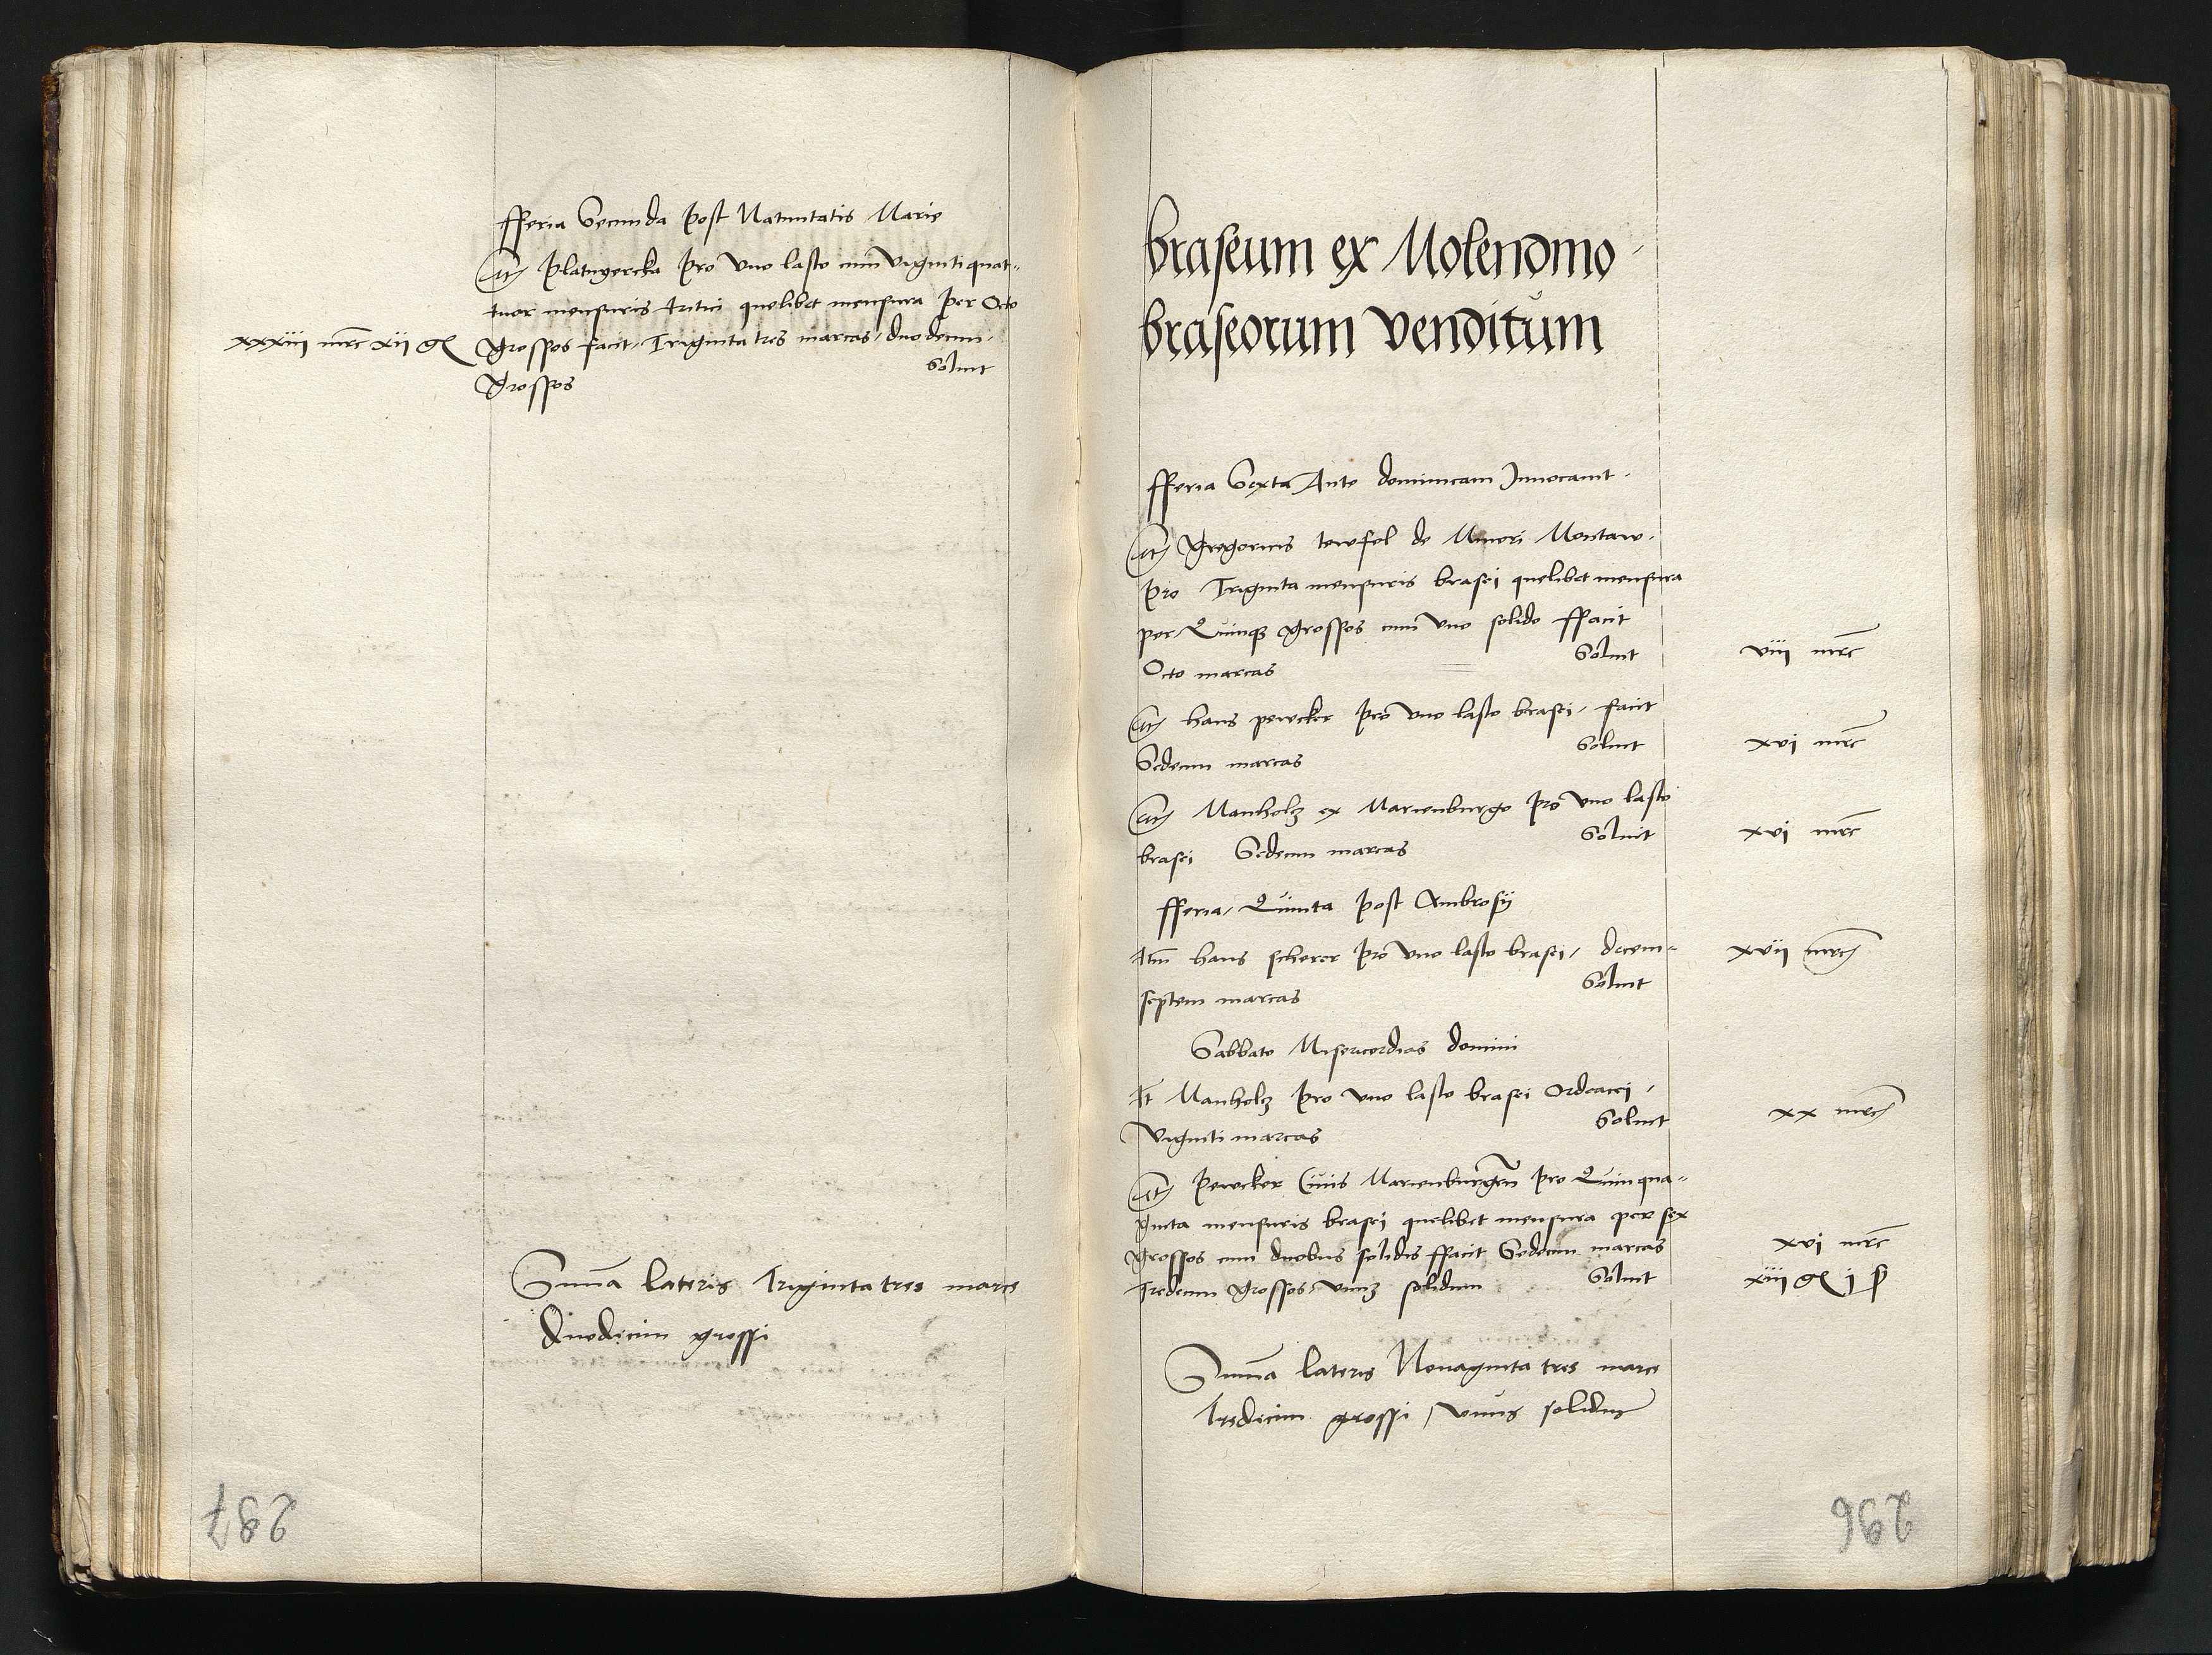 fferia Secunda post Natiuitatis Marie
It platnyercka pro vno lasto cum viginti quat-
tuor mensuris tritici quelibet mensura per Octo
xxxiii mrc xii gr grossos facit Triginta tres marcas duodecim
Soluit
grossos
Summa lateris Triginta tres marce
duodecim grossi
287
braseum ex Molendino
braseorum venditum
fferia Sexta Ante dominicam Inuocauit
It gregorius tewfel de Minori Montaw
pro Triginta mensuris brasei quelibet mensura
per Quinque grossos cum vno solido ffacit
Octo marcas Soluit viii mrc
It hans pewcker pro vno lasto brasei facit
Sedecim marcas Soluit xvi mrc
It Manholz ex Marienburgo pro vno lasto
brasei Sedecim marcas Soluit xvi mrc
fferia Quinta post Ambrosij
Itm hans scherer pro vno lasto brasei decem- xvii mrc
septem marcas Soluit
Sabbato Misericordias domini
It Manholz pro vno lasto brasei Ordeacei
viginti marcas Soluit xx mrc
It pewcker Ciuis Marienburgen pro Quinqua-
ginta mensuris brasei quelibet mensura per sex
grossos cum duobus solidis ffacit Sedecim marcas xvi mrc
Tredecim grossos vnum solidum Soluit xiii gr j s
Summa lateris Nonaginta tres marce
Tredecim grossi vnus solidus
296